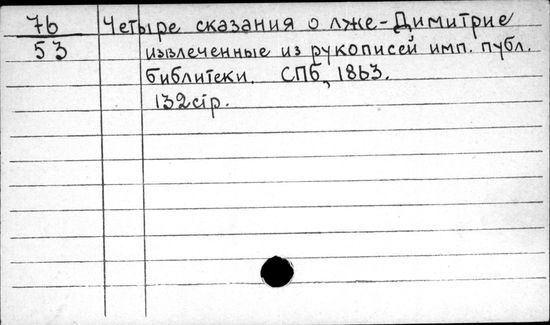 76 Четыре сказания о лже-Димитрие
53 извлеченные из рукописей имп. публ.
библитеки. СПб, 1863.
132стр.